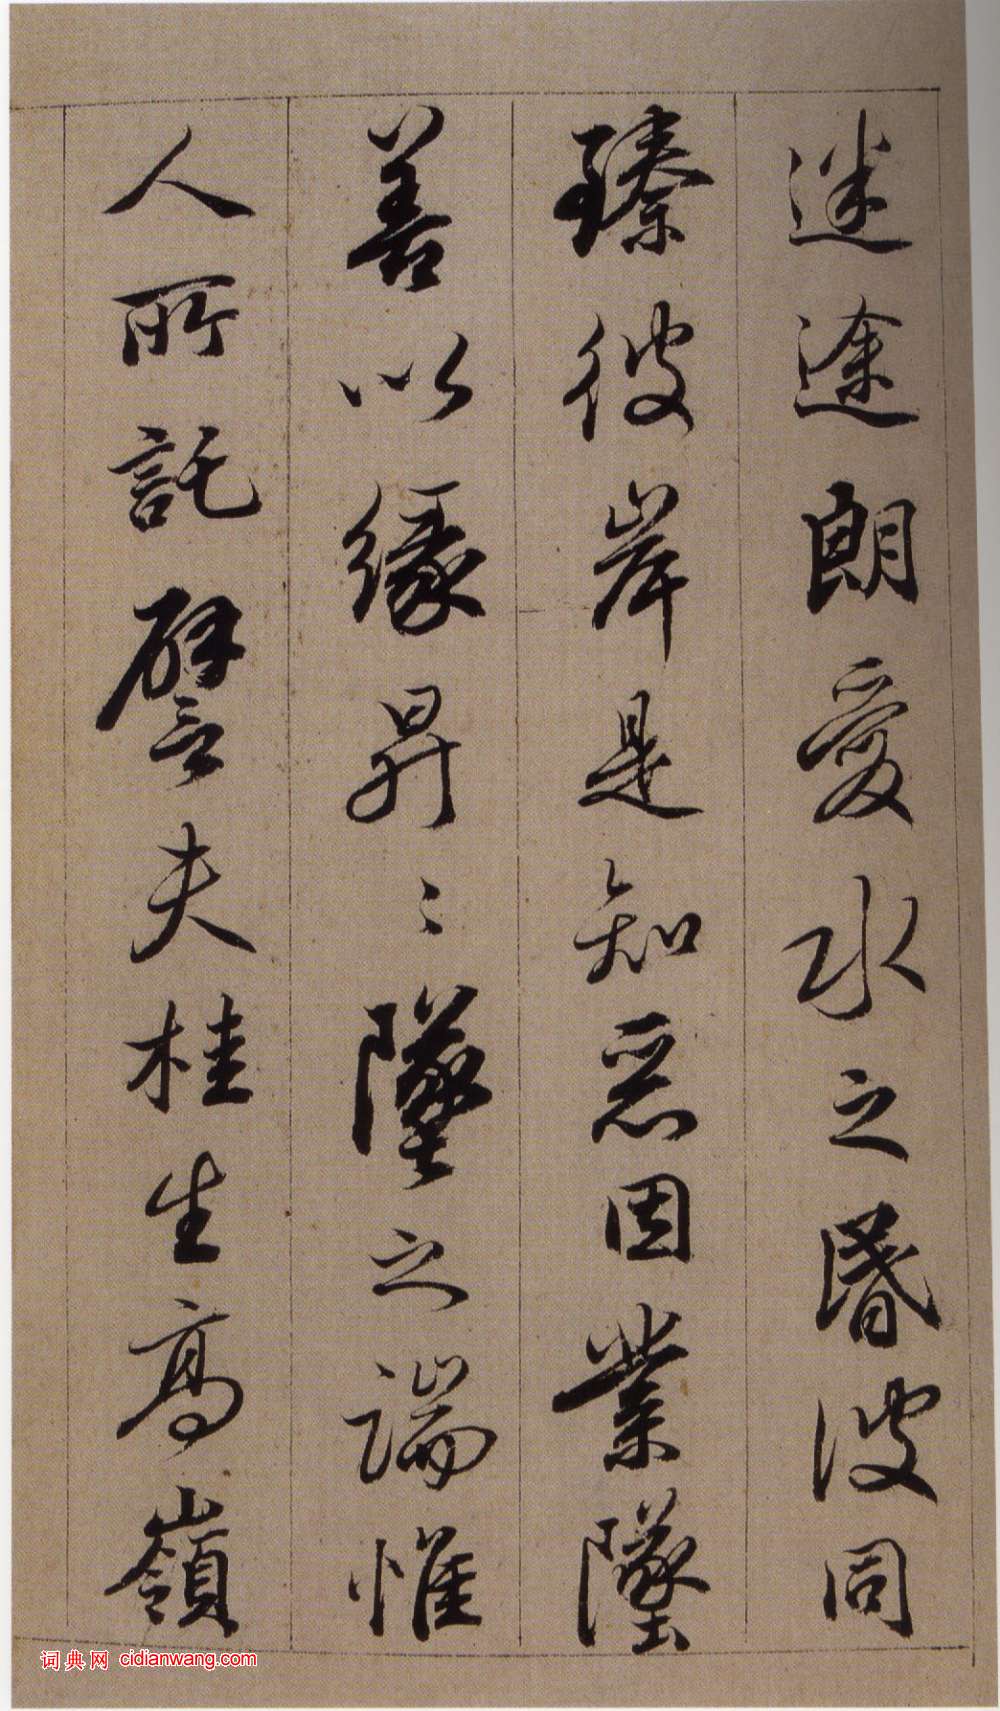 迷途朗愛水之昏波同
臻彼岸是知惡因業墜
善以緣昇〻墜之端惟
人所託譬夫桂生高嶺
词典网 cidianwang.com